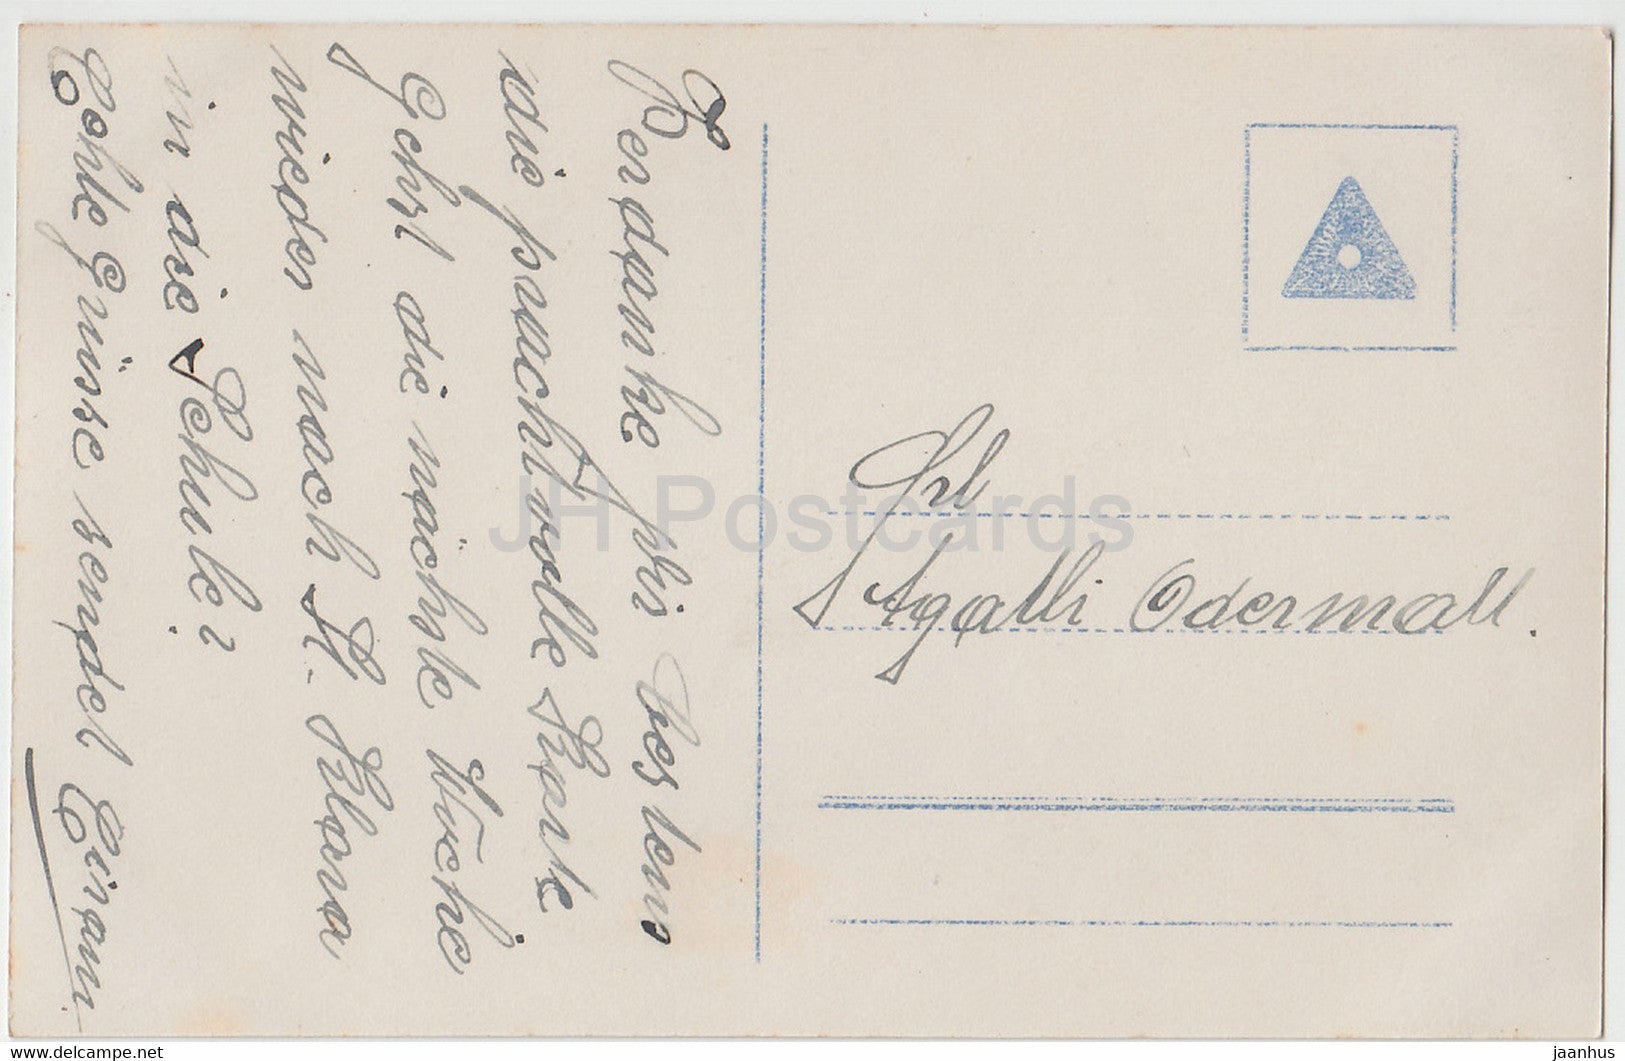 Verdanke phis bestens
die prachtvolle Karte
Gehst die nächste Woche
wieder nach St. Klara
in die Schule?
Grüsse sendet
Frl
Agathi Odermatt.
JH Postcards
www.delcampe.net
jaanhus